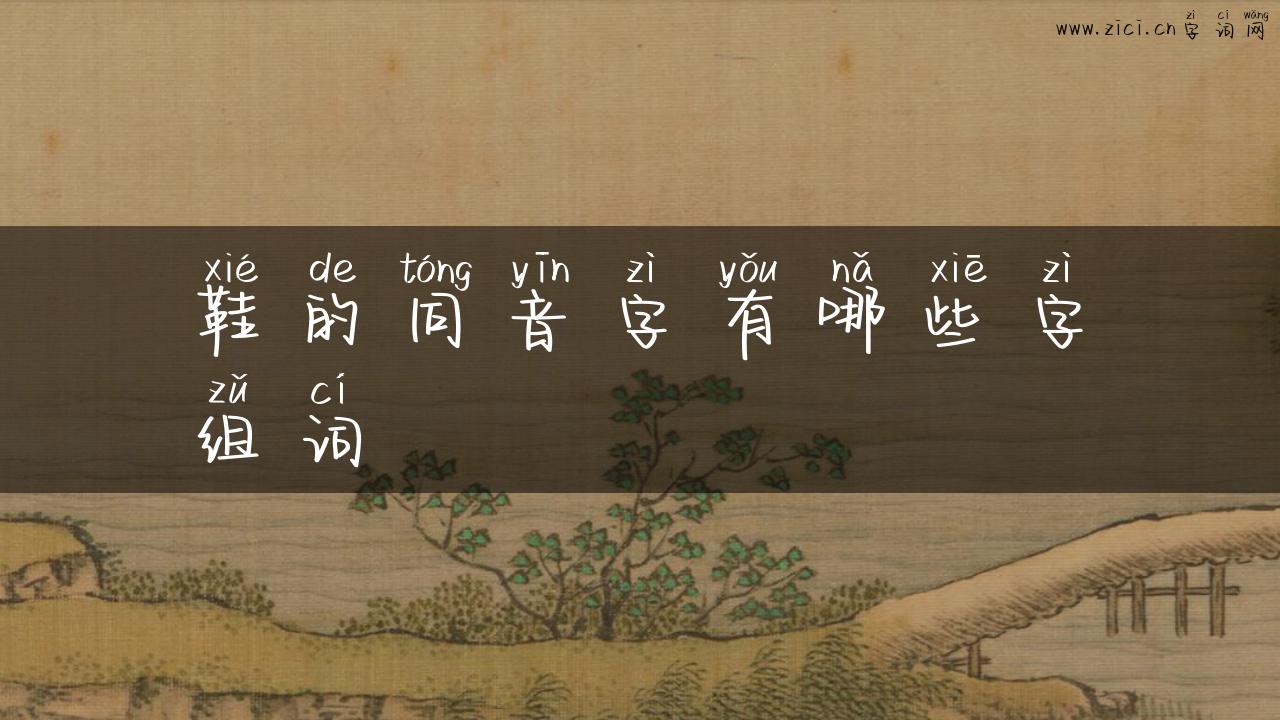 zì cí wǎng
www.zici.cn 字词网
xié de tóng yīn zì yǒu nǎ xiē zì
鞋的同音字有哪些字
zǔ cí
组词